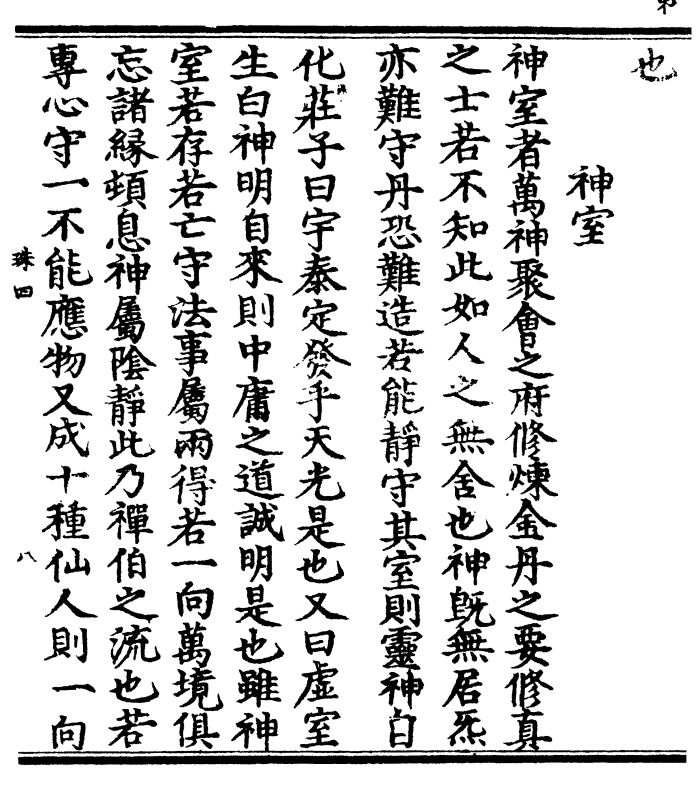 也
神室
神室者萬神聚會之府修煉金丹之要修真
之士若不知此如人之無舍也神既無居炁
亦難守丹恐難造若能靜守其室則靈神自
化莊子曰宇泰定發乎天光是也又曰虛室
生白神明自來則中庸之道誠明是也雖神
室若存若亡守法事屬兩得若一向萬境俱
忘諸緣頓息神屬陰靜此乃禪伯之流也若
專心守一不能應物又成十種仙人則一向
珠四
八